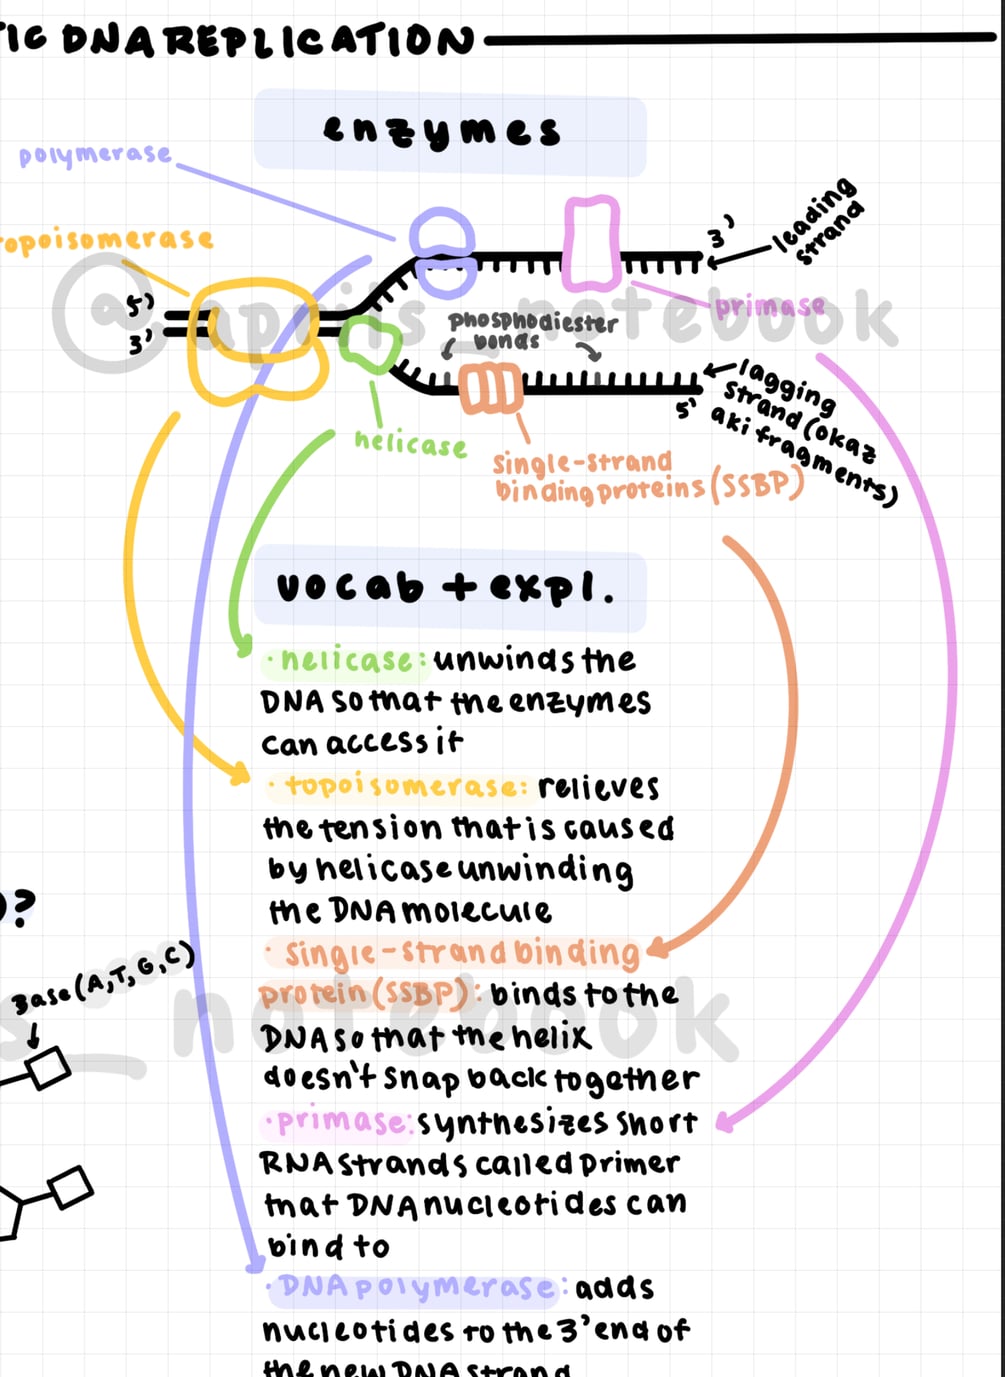 TIC DNA REPLICATION
enzymes
polymerase
topoisomerase
5'
3'
3'
leading
strand
primase
phosphodiester
bonds
helicase
single-strand
binding proteins (SSBP)
5'
lagging
strand (okaz
aki fragments)
@apri's_notebook
vocab + expl.
· helicase: unwinds the
DNA so that the enzymes
can access it
· topoisomerase: relieves
the tension that is caused
by helicase unwinding
the DNA molecule
· single-strand binding
protein (SSBP): binds to the
DNA so that the helix
doesn't snap back together
· primase: synthesizes short
RNA strands called primer
that DNA nucleotides can
bind to
· DNA polymerase: adds
nucleotides to the 3' end of
the new DNA strand
?
Base (A,T,G,C)
s_notebook